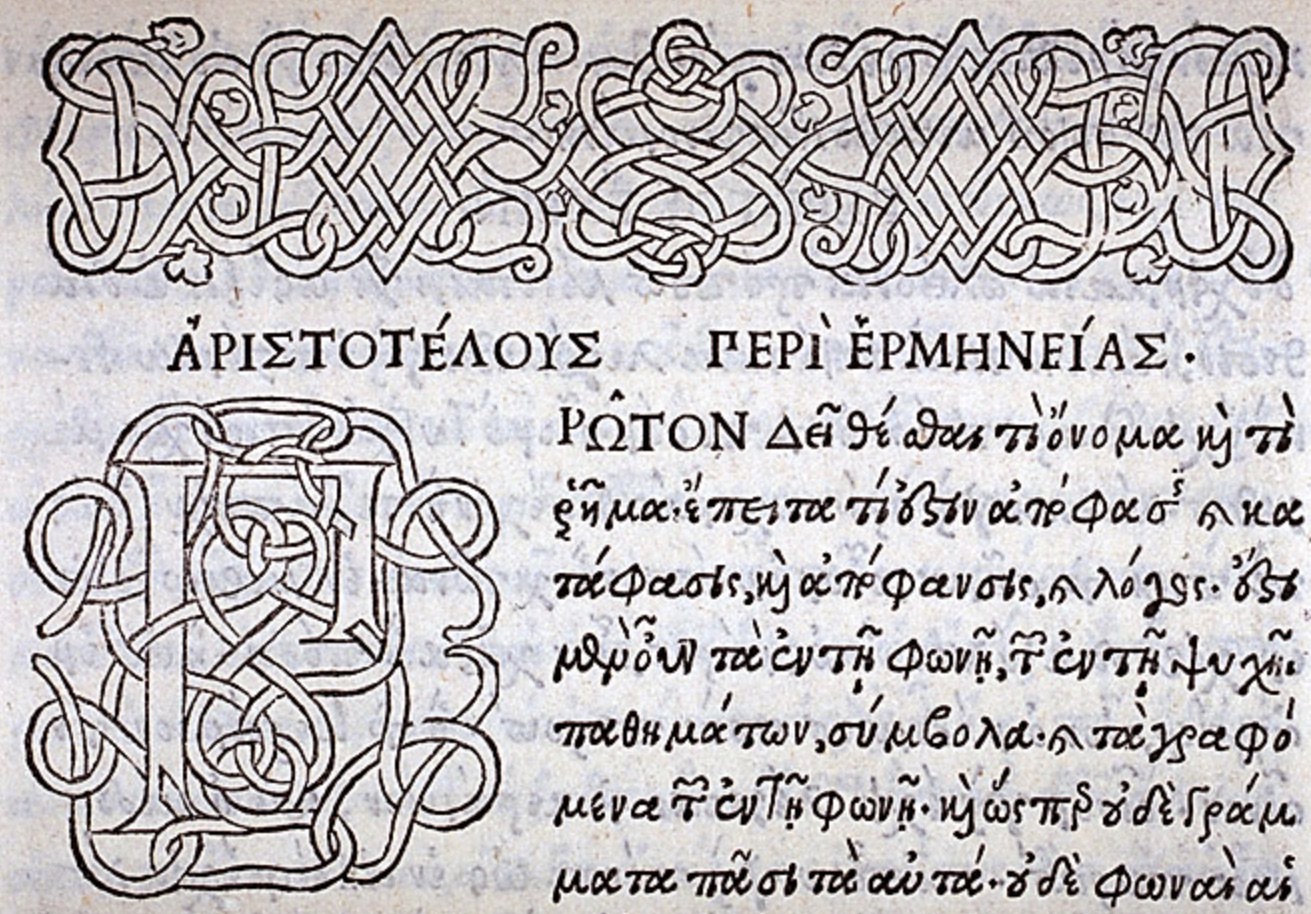 ἈΡΙΣΤΟΤΈΛΟΥΣ ΠΕΡῚ ἙΡΜΗΝΕΊΑΣ.
ΠΡΩ͂ΤΟΝ ΔΕῖ θέσθαι τὶ ὄνομα καὶ τὶ
ῥῆμα· ἔπειτα τί ὅξιν ἀπόφασις καὶ κα
τάφασις, καὶ ἀπόφανσις, καὶ λόγος· ὅξι
μὲν οὖν τὰ ἐν τῇ φωνῇ, τῶν ἐν τῇ ψυχῇ
παθημάτων, σύμβολα· καὶ τὰ γραφό
μενα τῶν ἐν τῇ φωνῇ· καὶ ὥσπερ οὐδὲ γράμ
ματα πᾶσι τὰ αὐτά· οὐδὲ φωναὶ αἱ